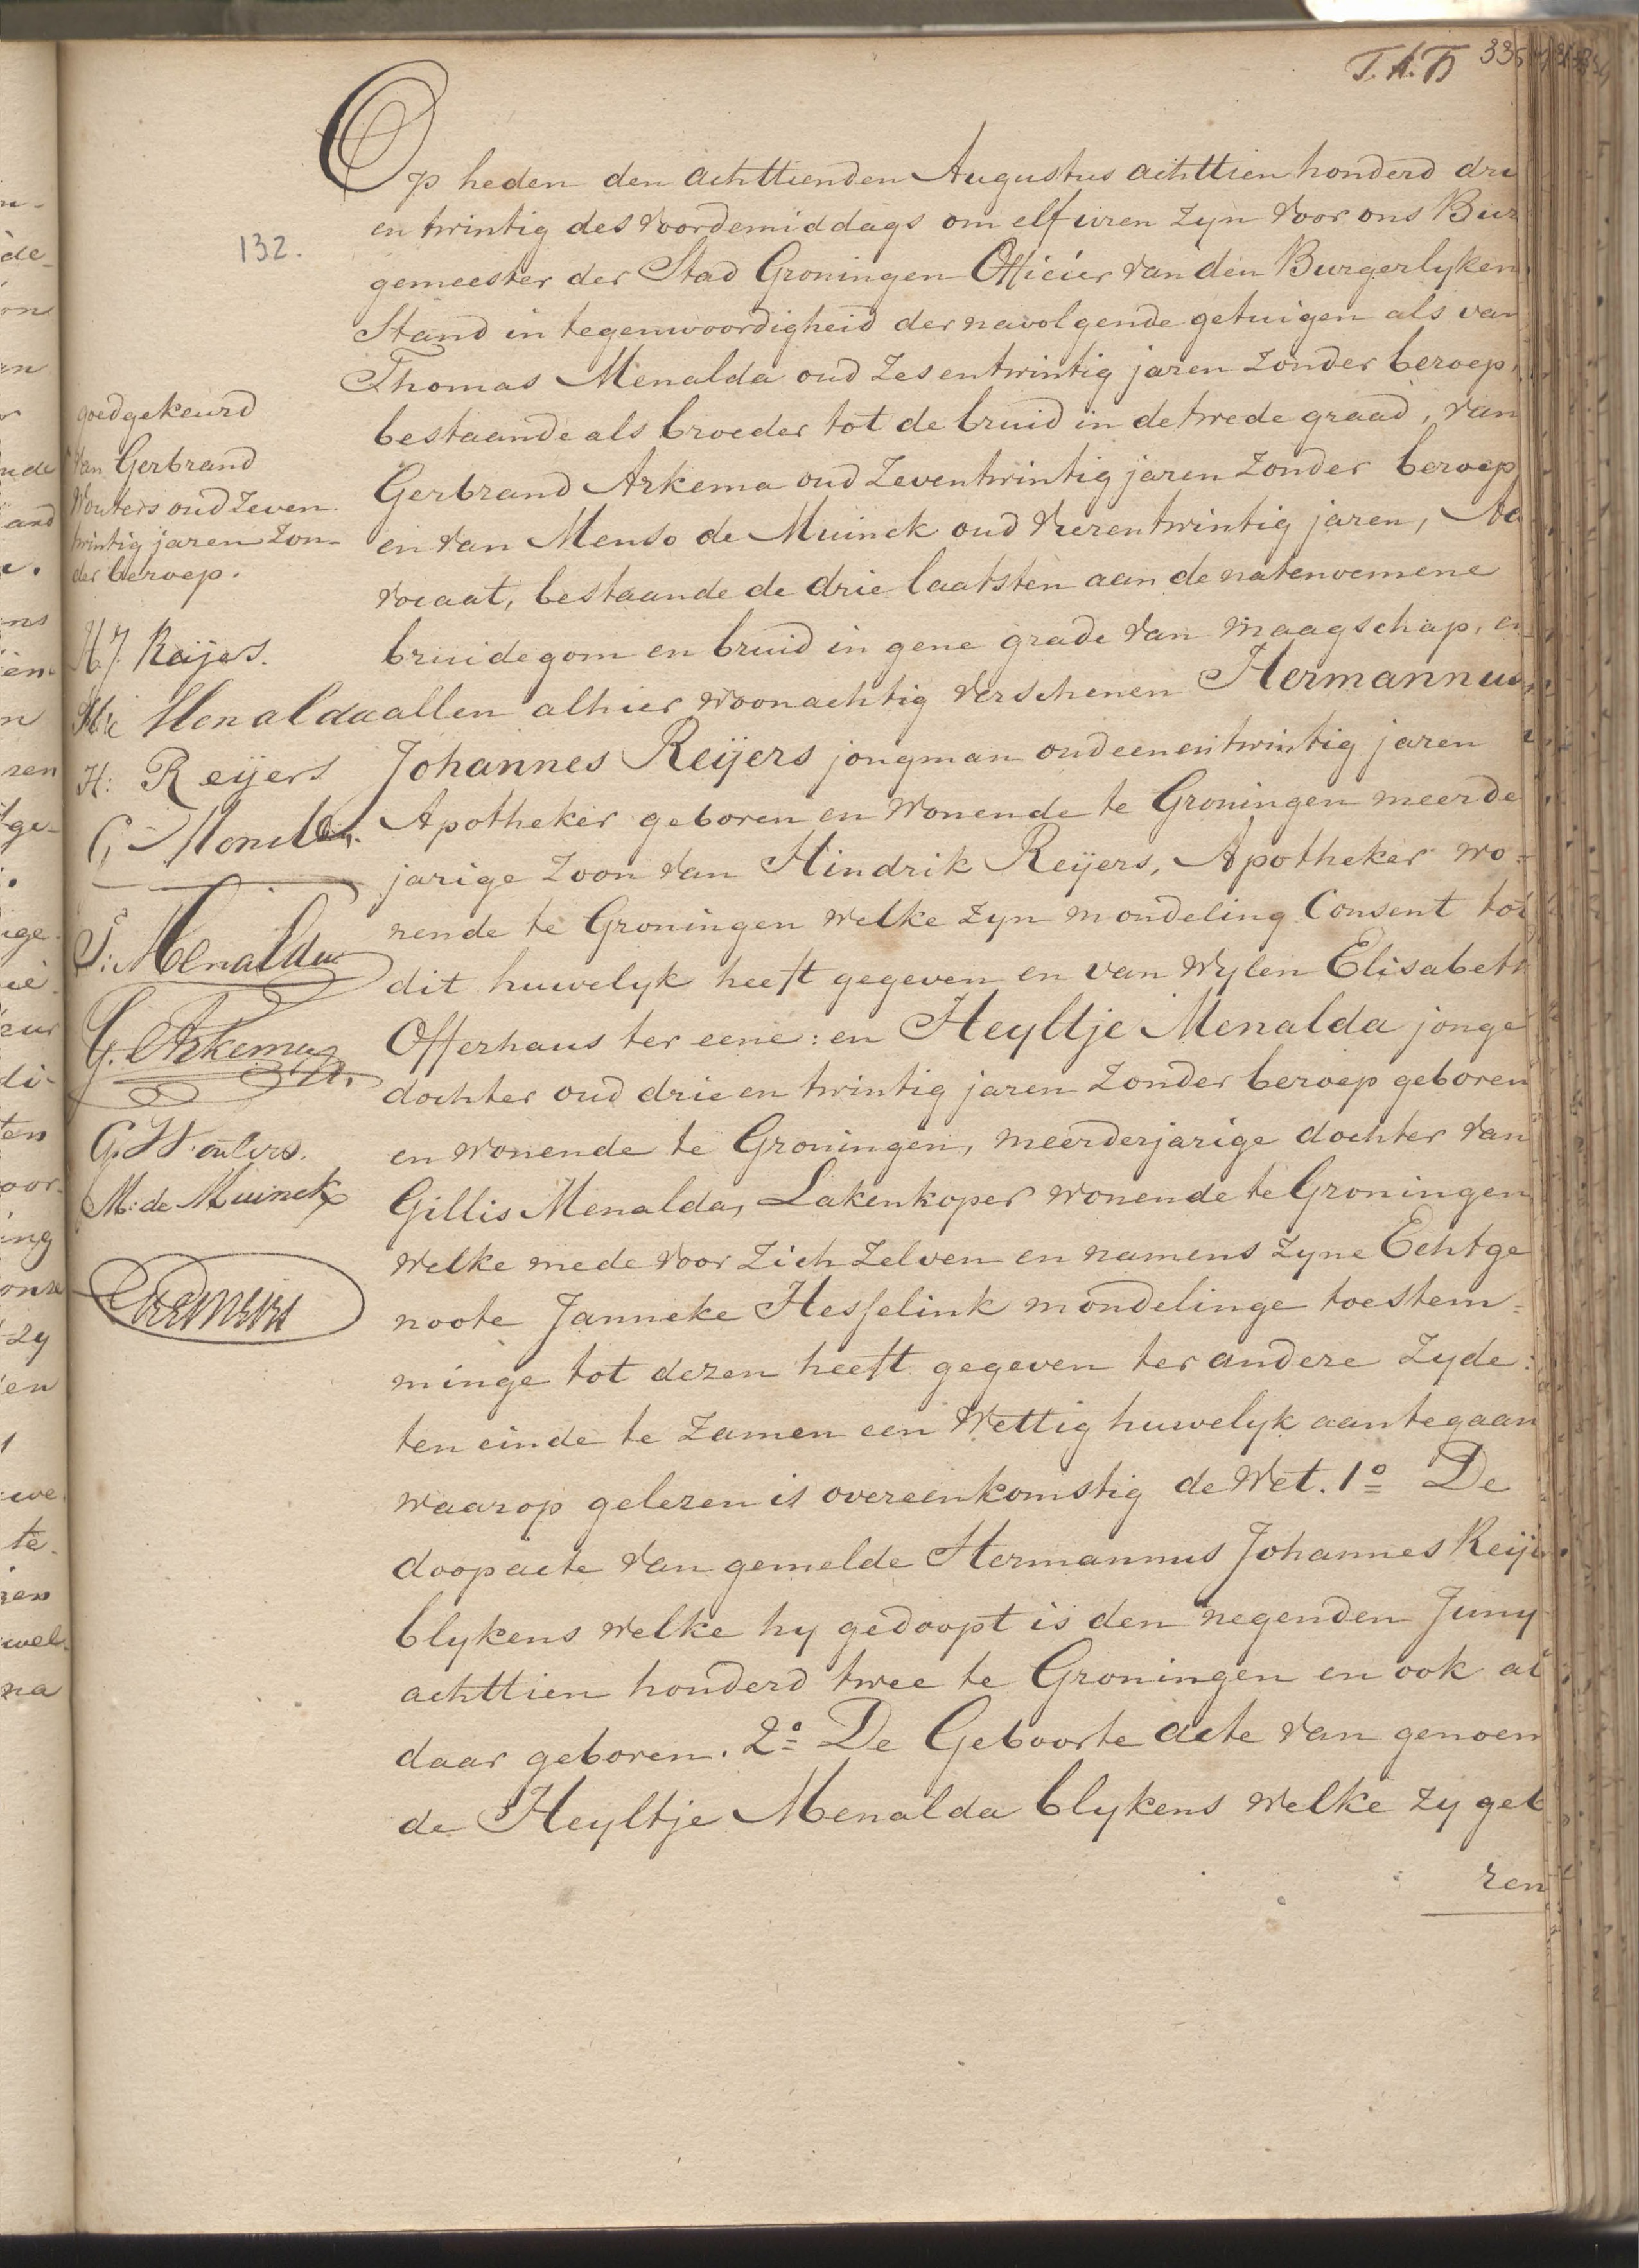 T.A.B 335
Op heden den achttienden Augustus achttien honderd dri
132.
en twintig des voordemiddags om elf uren zyn voor ons Bur
gemeester der Stad Groningen Officier van den Burgerlyken
Stand in tegenwoordigheid der navolgende getuigen als van
Thomas Menalda oud zesentwintig jaren zonder beroep,
bestaande als broeder tot de bruid in de twede graad, van
Gerbrand Arkema oud zeventwintig jaren zonder beroep
en van Menso de Muinck oud vierentwintig jaren, Ad
vocaat, bestaande de drie laatsten aan de natenoemene
bruidegom en bruid in gene grade van maagschap, en
allen alhier woonachtig verschenen Hermannus
Johannes Reijers jongman oud eenentwintig jaren
Apotheker geboren en wonende te Groningen meerde
jarige zoon van Hindrik Reijers, Apotheker wo=
nende te Groningen welke zyn mondeling Consent tot
dit huwelyk heeft gegeven en van wylen Elisabeth
Offerhaus ter eene: en Heyltje Menalda jonge
dochter oud drie en twintig jaren zonder beroep geboren
en wonende te Groningen, meerderjarige dochter van
Gillis Menalda, Lakenkoper wonende te Groningen
welke mede voor zich zelven en namens zyne Echtge
noote Janneke Hesselink mondelinge toestem=
minge tot dezen heeft gegeven ter andere zyde:
ten einde te zamen een wettig huwelyk aantegaan
waarop gelezen is overeenkomstig de wet. 1º De
doopacte van gemelde Hermannus Johannes Reije
blykens welke hy gedoopt is den negenden Juny
achttien honderd twee te Groningen en ook al
daar geboren. 2º De Geboorte acte van genoem
de Heyltje Menalda blykens welke zy geb
ren
goedgekeurd
van Gerbrand
Wouters oud zeven
twintig jaren zon-
der beroep.
H.J. Reijers.
Menalda
H: Reijers
G Menalda
T: Menalda
G. Arkema
G. Wouters.
M: de Muinck